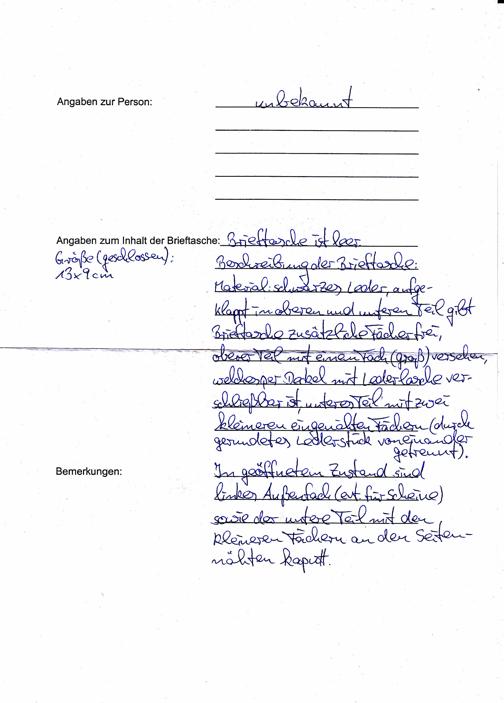 Angaben zur Person: unbekannt
Angaben zum Inhalt der Brieftasche: Brieftasche ist leer
Größe (geschlossen):
13x9cm
Beschreibung der Brieftasche:
Material: schwarzes Leder, aufge-
klappt in oberen und unteren Teil gibt
Brieftasche zusätzliche Fächer frei,
oberer Teil mit einem Fach (groß) versehen,
welches per Deckel mit Lederlasche ver-
schließbar ist, unteres Teil mit zwei
kleineren eingenähten Fächern (durch
gerundetes Lederstück voneinander
getrennt).
Bemerkungen: In geöffnetem Zustand sind
linkes Außenfach (evt. für Scheine)
sowie der untere Teil mit den
kleineren Fächern an den Seiten-
nähten kaputt.